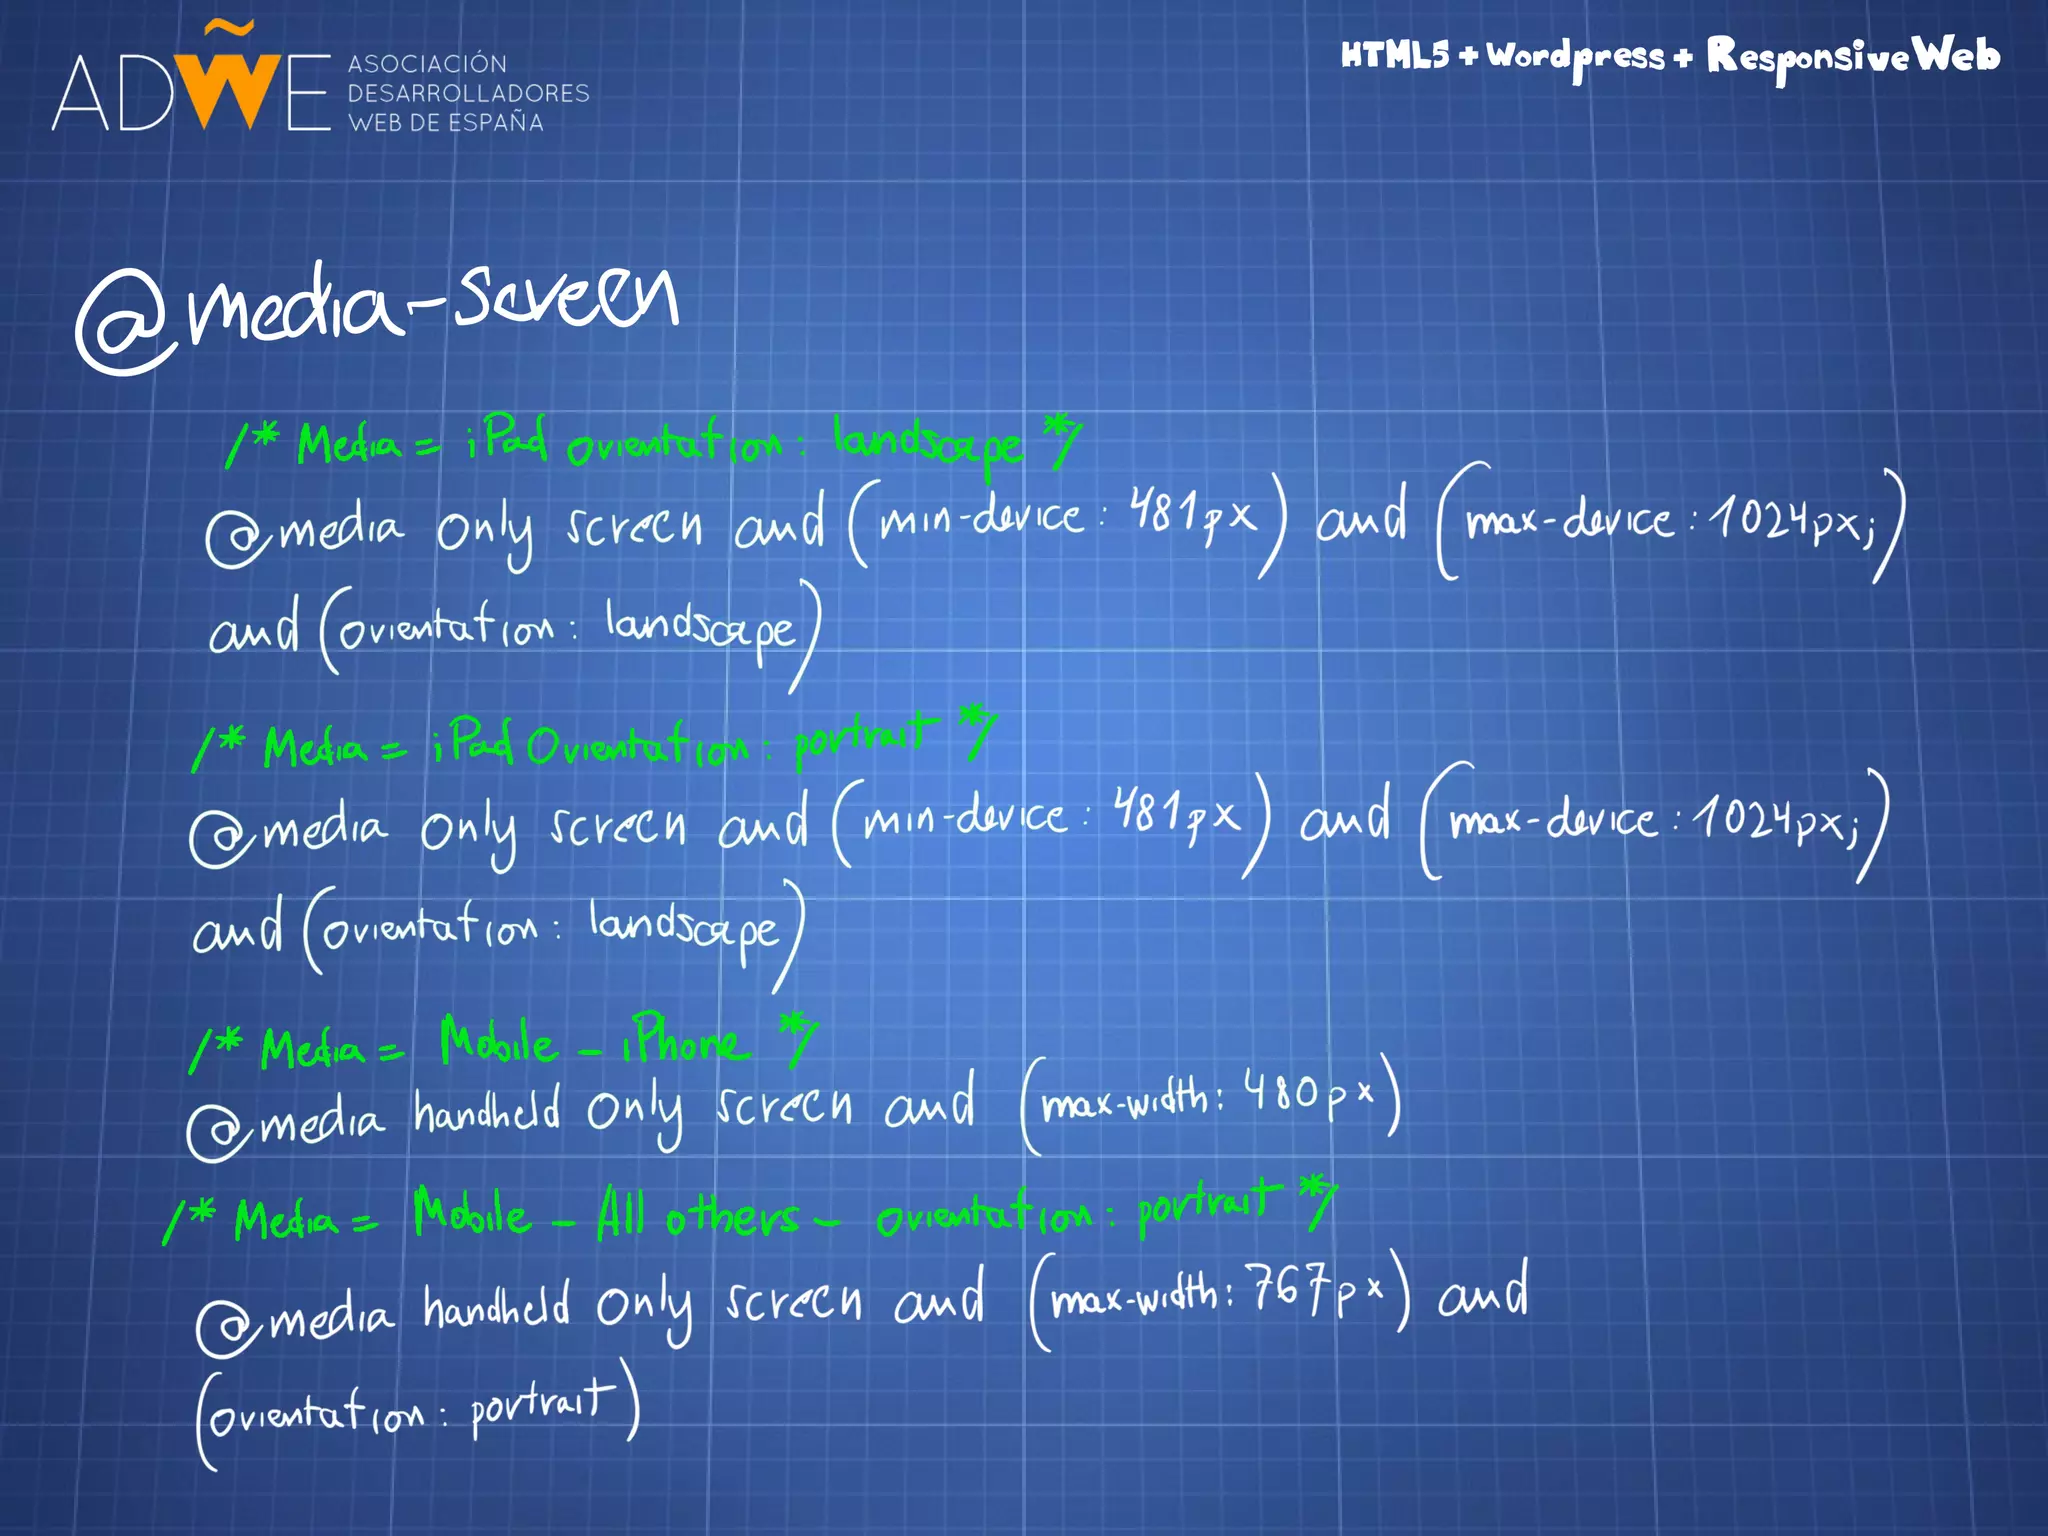 ADWÑE ASOCIACIÓN
DESARROLLADORES
WEB DE ESPAÑA
HTML5 + Wordpress + Responsive Web
@media-screen
/* Media = iPad orientation: landscape */
@media only screen and (min-device: 481px) and (max-device: 1024px;)
and (orientation: landscape)
/* Media = iPad Orientation: portrait */
@media only screen and (min-device: 481px) and (max-device: 1024px;)
and (orientation: landscape)
/* Media = Mobile - iPhone */
@media handheld only screen and (max-width: 480px)
/* Media = Mobile - All others - orientation: portrait */
@media handheld only screen and (max-width: 767px) and
(orientation: portrait)